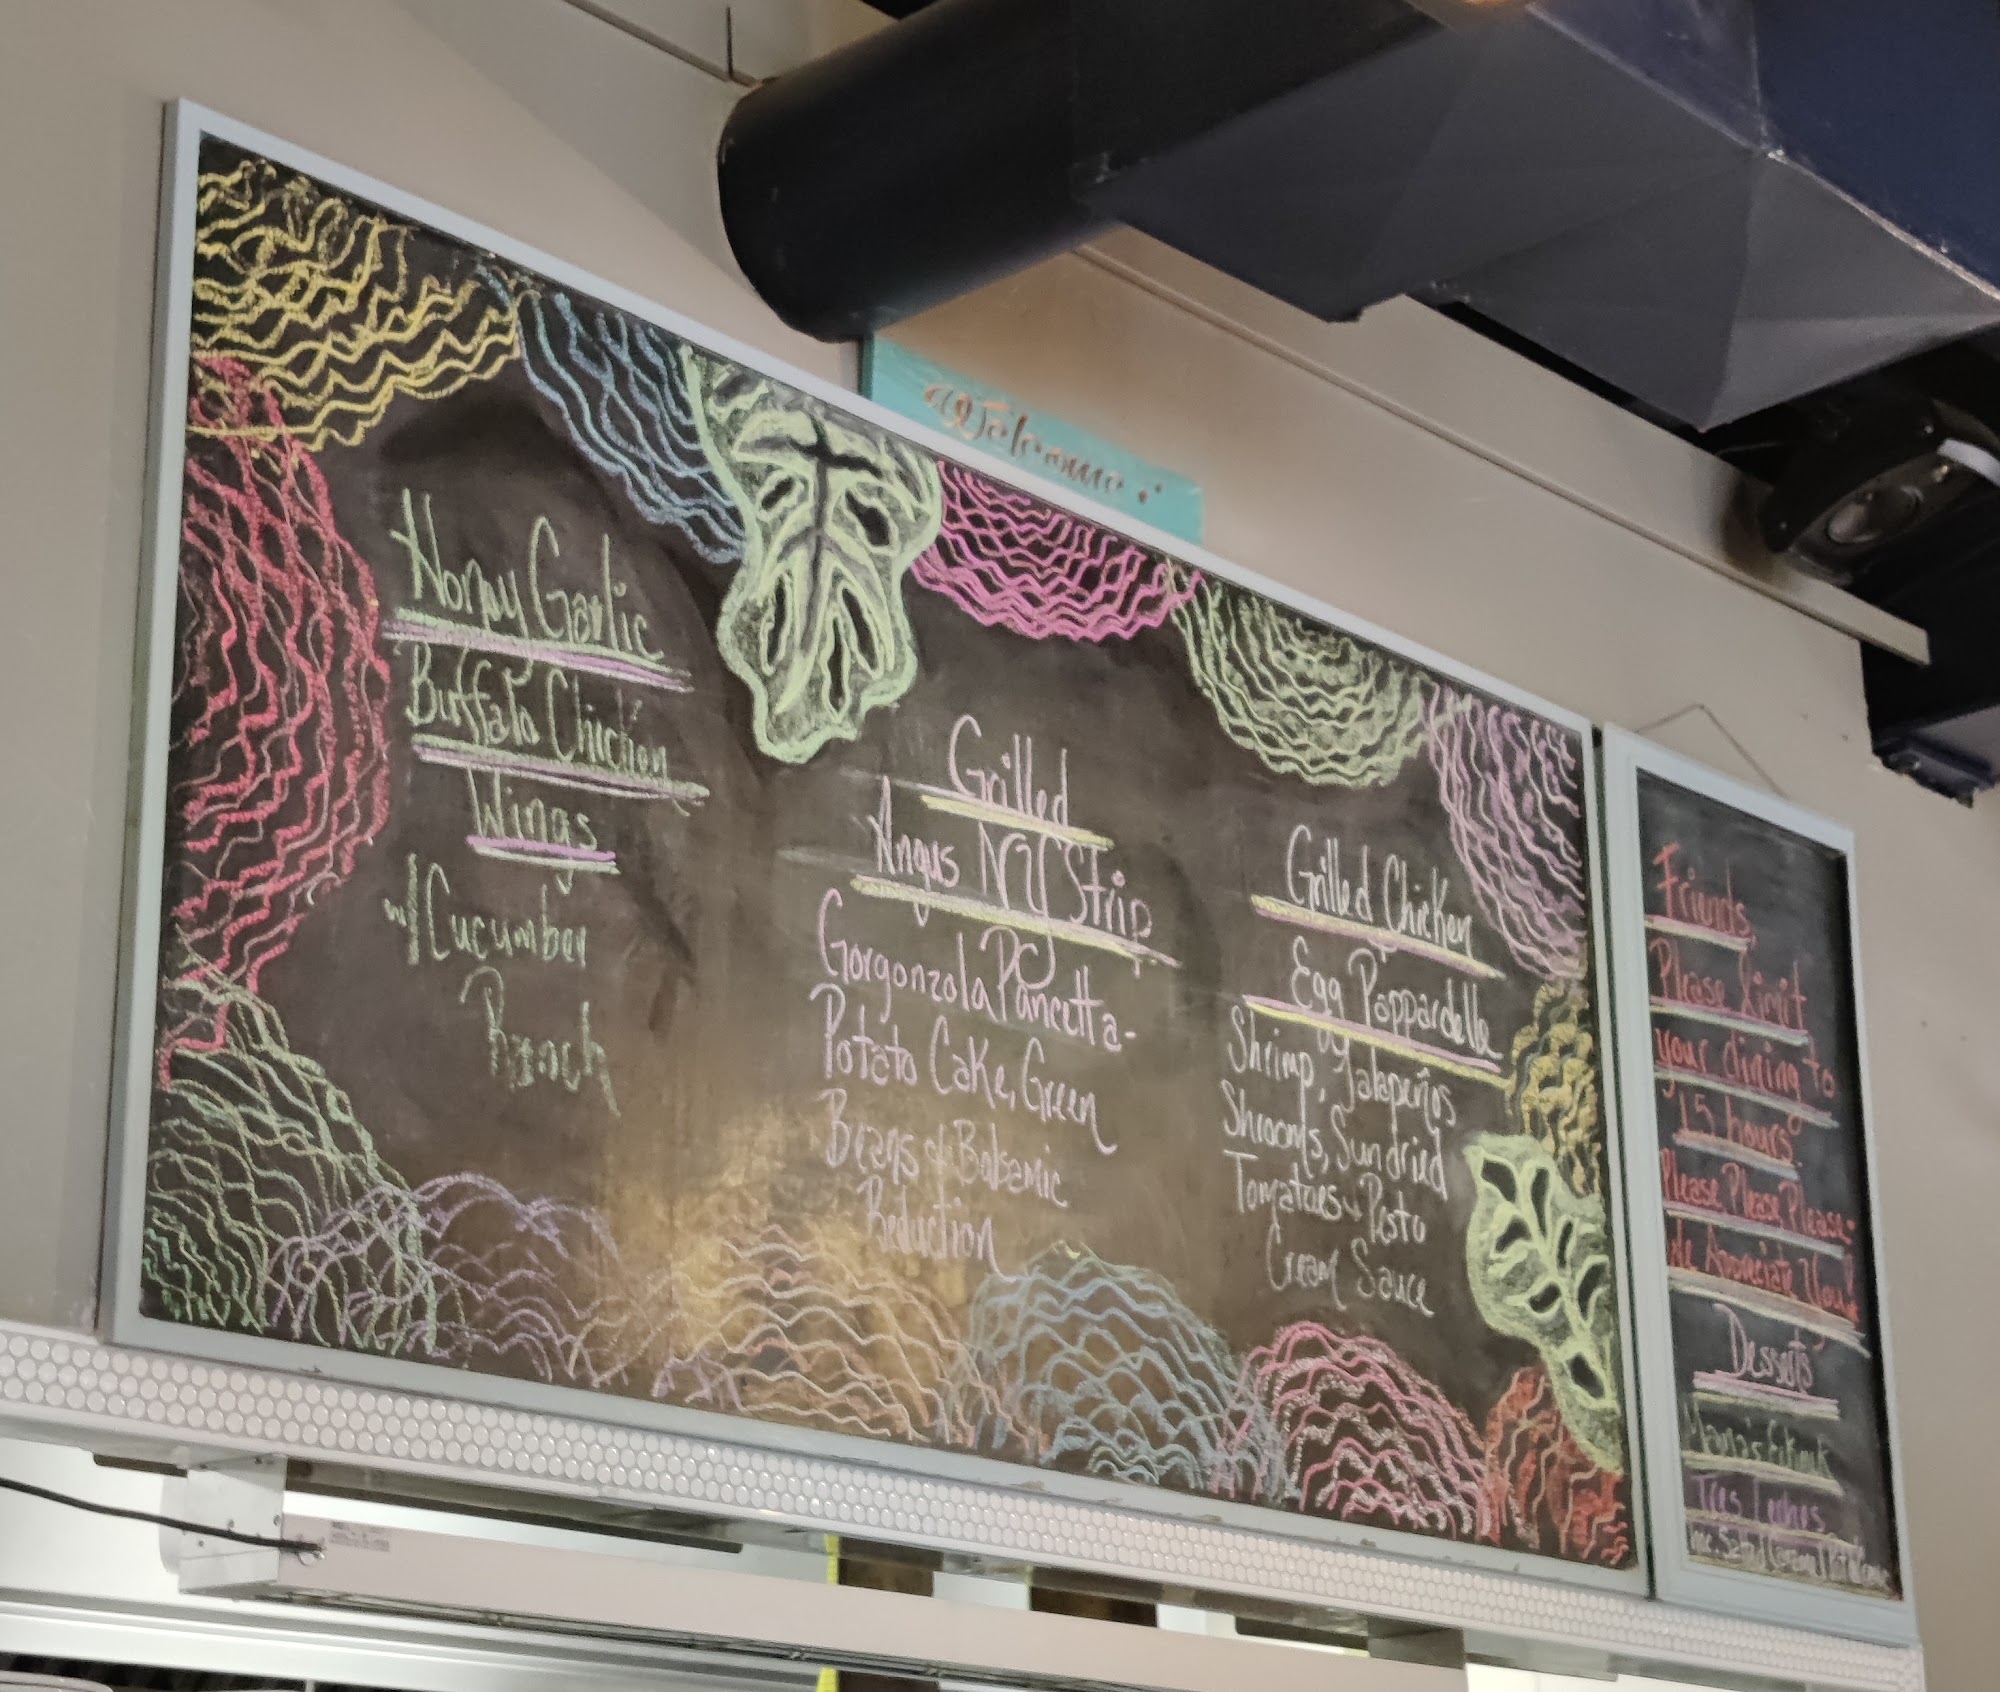 Welcome
Honey Garlic
Buffalo Chicken
Wings
w/ Cucumber
Ranch
Grilled
Angus NYC Strip
Gorgonzola Pancetta-
Potato Cake, Green
Beans & Balsamic
Reduction
Grilled Chicken
Egg Pappardelle
Shrimp, Jalapeños
Shrooms, Sundried
Tomatoes & Pesto
Cream Sauce
Friends,
Please limit
your dining to
1.5 hours.
Please Please Please-
We Appreciate You!
Desserts
Tres Leches
Salted Caramel